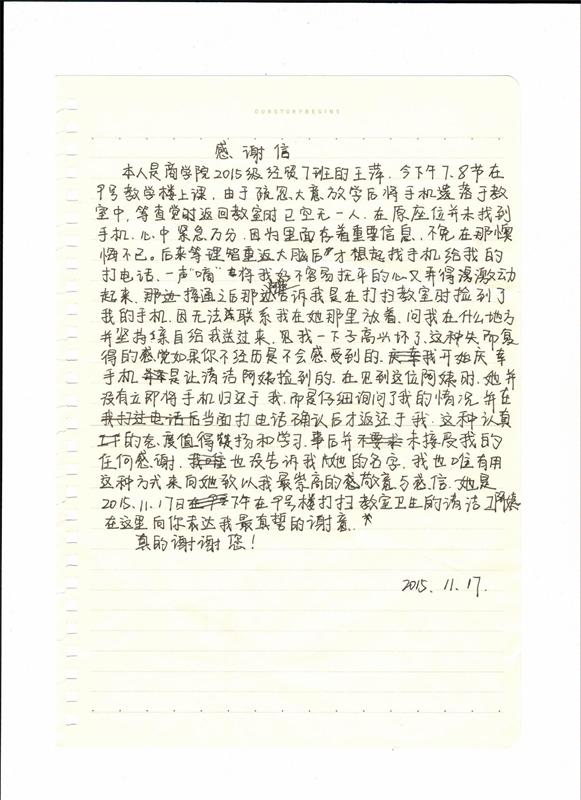 OURSTORYBEGINS
感谢信
本人是商学院2015级经贸7班的王萍,今下午7.8节在
9号教学楼上课,由于疏忽大意放学后将手机遗落于教
室中,等查觉时返回教室时已空无一人,在原座位并未找到
手机,心中紧急万分,因为里面存着重要信息,不免在那懊
悔不已。后来等理智重返大脑后才想起找手机给我的
打电话、一声"嘀"将我好不容易抚平的心又弄得激动
起来,接通之后那边告诉我是在打扫教室时捡到了
我的手机,因无法联系我在她那里放着,问我在什么地方
并坚持亲自给我送过来,另我一下子高兴坏了,这种失而复
得的感觉如果你不经历是不会感受到的,我开始庆幸
手机是让清洁阿姨捡到的,在见到这位阿姨时,她并
没有立即将手机归还于我,而是仔细询问了我的情况,并在
后当面打电话确认后才返还于我,这种认真
的态度值得赞扬和学习,事后并未接受我的
任何感谢,也没告诉我她的名字,我也唯有用
这种方式来向她致以我最崇高的敬意与感信,她是
2015.11.17日下午在9号楼打扫教室卫生的清洁阿姨
在这里向你表达我最真挚的谢意.
真的谢谢您!
2015.11.17.